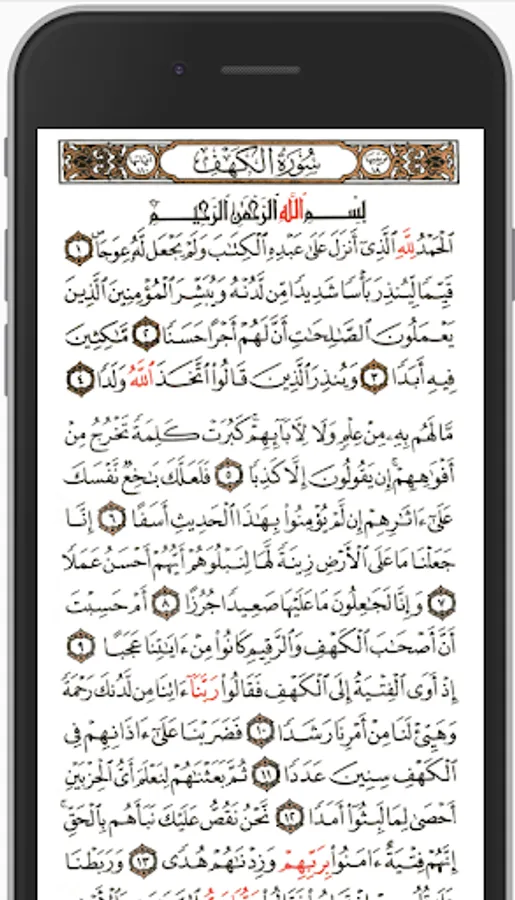 سُورَةُ الْكَهْفِ
بِسْمِ ٱللَّهِ ٱلرَّحْمَٰنِ ٱلرَّحِيمِ
ٱلْحَمْدُ لِلَّهِ ٱلَّذِىٓ أَنزَلَ عَلَىٰ عَبْدِهِ ٱلْكِتَٰبَ وَلَمْ يَجْعَل لَّهُۥ عِوَجَاۜ ١
قَيِّمًا لِّيُنذِرَ بَأْسًا شَدِيدًا مِّن لَّدُنْهُ وَيُبَشِّرَ ٱلْمُؤْمِنِينَ ٱلَّذِينَ
يَعْمَلُونَ ٱلصَّٰلِحَٰتِ أَنَّ لَهُمْ أَجْرًا حَسَنًا ٢ مَّٰكِثِينَ
فِيهِ أَبَدًا ٣ وَيُنذِرَ ٱلَّذِينَ قَالُوا۟ ٱتَّخَذَ ٱللَّهُ وَلَدًا ٤
مَّا لَهُم بِهِۦ مِنْ عِلْمٍ وَلَا لِءَابَآئِهِمْ ۚ كَبُرَتْ كَلِمَةً تَخْرُجُ مِنْ
أَفْوَٰهِهِمْ ۚ إِن يَقُولُونَ إِلَّا كَذِبًا ٥ فَلَعَلَّكَ بَٰخِعٌ نَّفْسَكَ
عَلَىٰٓ ءَاثَٰرِهِمْ إِن لَّمْ يُؤْمِنُوا۟ بِهَٰذَا ٱلْحَدِيثِ أَسَفًا ٦ إِنَّا
جَعَلْنَا مَا عَلَى ٱلْأَرْضِ زِينَةً لَّهَا لِنَبْلُوَهُمْ أَيُّهُمْ أَحْسَنُ عَمَلًا
٧ وَإِنَّا لَجَٰعِلُونَ مَا عَلَيْهَا صَعِيدًا جُرُزًا ٨ أَمْ حَسِبْتَ
أَنَّ أَصْحَٰبَ ٱلْكَهْفِ وَٱلرَّقِيمِ كَانُوا۟ مِنْ ءَايَٰتِنَا عَجَبًا ٩
إِذْ أَوَى ٱلْفِتْيَةُ إِلَى ٱلْكَهْفِ فَقَالُوا۟ رَبَّنَآ ءَاتِنَا مِن لَّدُنكَ رَحْمَةً
وَهَيِّئْ لَنَا مِنْ أَمْرِنَا رَشَدًا ١٠ فَضَرَبْنَا عَلَىٰٓ ءَاذَانِهِمْ فِى
ٱلْكَهْفِ سِنِينَ عَدَدًا ١١ ثُمَّ بَعَثْنَٰهُمْ لِنَعْلَمَ أَىُّ ٱلْحِزْبَيْنِ
أَحْصَىٰ لِمَا لَبِثُوٓا۟ أَمَدًا ١٢ نَّحْنُ نَقُصُّ عَلَيْكَ نَبَأَهُم بِٱلْحَقِّ ۚ
إِنَّهُمْ فِتْيَةٌ ءَامَنُوا۟ بِرَبِّهِمْ وَزِدْنَٰهُمْ هُدًى ١٣ وَرَبَطْنَا